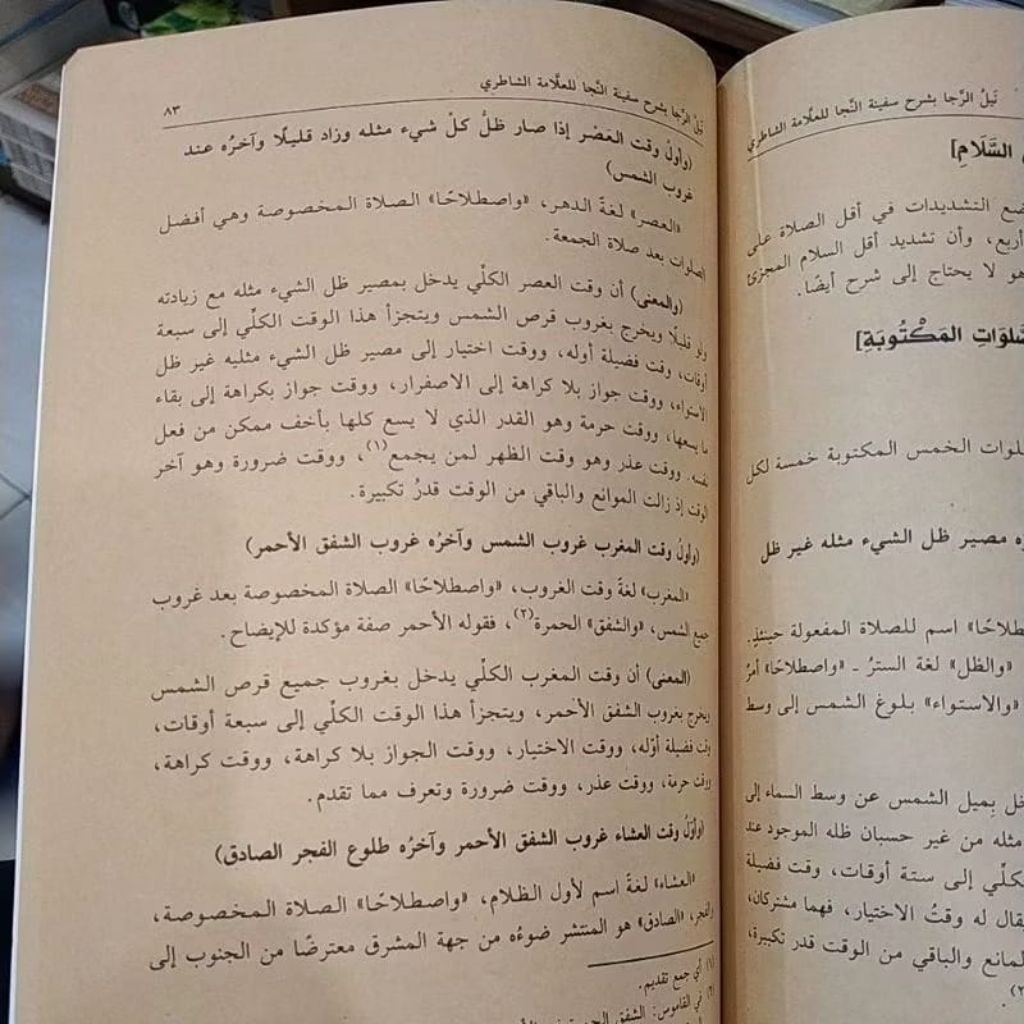 نَيلُ الرَّجا بشرح سفينة النَّجا للعلَّامة الشاطري
السَّلَامِ]
ضع التشديدات في أقل الصلاة على
أربع، وأن تشديد أقل السلام المجزئ
هو لا يحتاج إلى شرح أيضًا.
المَكْتُوبَةِ]
الخمس المكتوبة خمسة لكل
مصير ظل الشيء مثله غير ظل
اسم للصلاة المفعولة حينئذٍ.
«والظل» لغة السترُ ـ «واصطلاحًا» أمرٌ
«والاستواء» بلوغ الشمس إلى وسط
بِميل الشمس عن وسط السماء إلى
مثله من غير حسبان ظله الموجود عند
إلى ستة أوقات، وقت فضيلة
له وقتُ الاختيار، فهما مشتركان،
والباقي من الوقت قدر تكبيرة،
(٢).
نَيلُ الرَّجا بشرح سفينة النَّجا للعلَّامة الشاطري
٨٣
(وأولُ وقت العَصْر إذا صار ظلُّ كلّ شيء مثله وزاد قليلًا وآخرُه عند
غروب الشمس)
«العصر» لغةً الدهر، «واصطلاحًا» الصلاة المخصوصة وهي أفضل
الصلوات بعد صلاة الجمعة.
(والمعنى) أن وقت العصر الكلّي يدخل بمصير ظل الشيء مثله مع زيادته
ولو قليلًا ويخرج بغروب قرص الشمس ويتجزأ هذا الوقت الكلّي إلى سبعة
أوقات، وقت فضيلة أوله، ووقت اختيار إلى مصير ظل الشيء مثليه غير ظل
الاستواء، ووقت جواز بلا كراهة إلى الاصفرار، ووقت جواز بكراهة إلى بقاء
ما يسعها، ووقت حرمة وهو القدر الذي لا يسع كلها بأخف ممكن من فعل
نفسه. ووقت عذر وهو وقت الظهر لمن يجمع(١)، ووقت ضرورة وهو آخر
الوقت إذ زالت الموانع والباقي من الوقت قدرُ تكبيرة.
(وأولُ وقت المغرب غروب الشمس وآخرُه غروب الشفق الأحمر)
«المغرب» لغةً وقت الغروب، «واصطلاحًا» الصلاة المخصوصة بعد غروب
جميع الشمس، «والشفق» الحمرة(٢)، فقوله الأحمر صفة مؤكدة للإيضاح.
(المعنى) أن وقت المغرب الكلّي يدخل بغروب جميع قرص الشمس
ويخرج بغروب الشفق الأحمر، ويتجزأ هذا الوقت الكلّي إلى سبعة أوقات،
وقت فضيلة أوّله، ووقت الاختيار، ووقت الجواز بلا كراهة، ووقت كراهة،
ووقت حرمة، ووقت عذر، ووقت ضرورة وتعرف مما تقدم.
(وأوّلُ وقت العشاء غروب الشفق الأحمر وآخرُه طلوع الفجر الصادق)
«العشاء» لغةً اسم لأول الظلام، «واصطلاحًا» الصلاة المخصوصة،
والفجر، «الصادق» هو المنتشر ضوءُه من جهة المشرق معترضًا من الجنوب إلى
(١) أي جمع تقديم.
(٢) في القاموس: الشفق